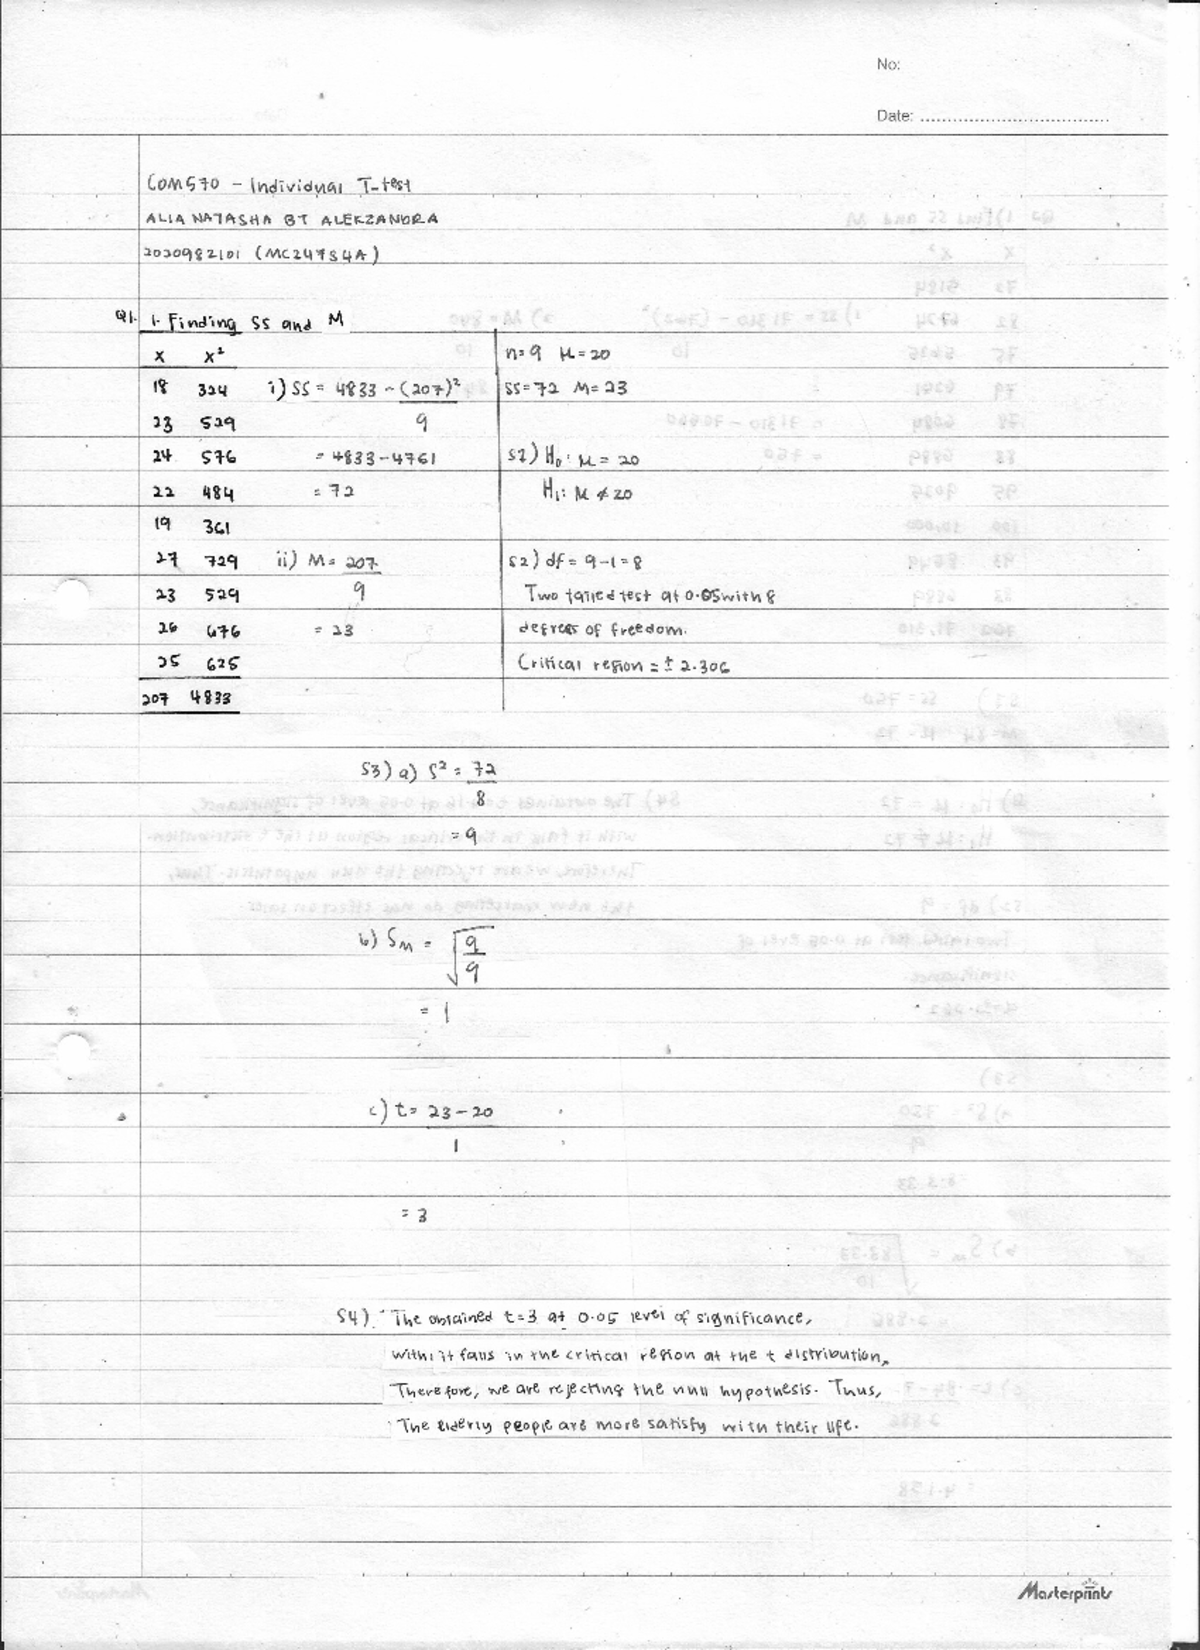 No:
Date: ..................................
COM570 - Individual T-test
ALIA NATASHA BT ALEKZANDRA
2020982101 (MC247S4A)
Q1. 1. Finding SS and M
X X²
18 324
23 529
24 576
22 484
19 361
27 729
23 529
26 676
25 625
207 4833
i) SS = 4833 - (207)²
9
= 4833-4761
= 72
ii) M = 207
9
= 23
n=9 μ=20
SS=72 M=23
S1) H₀: μ = 20
H₁: μ ≠ 20
S2) df = 9-1=8
Two tailed test at 0.05 with 8
degrees of freedom.
Critical region = ± 2.306
S3) a) S² = 72
8
= 9
b) Sm = √9
9
= 1
c) t = 23-20
1
= 3
S4) The obtained t=3 at 0.05 level of significance,
with it falls in the critical region at the t distribution,
Therefore, we are rejecting the null hypothesis. Thus,
The elderly people are more satisfy with their life.
Masterprints